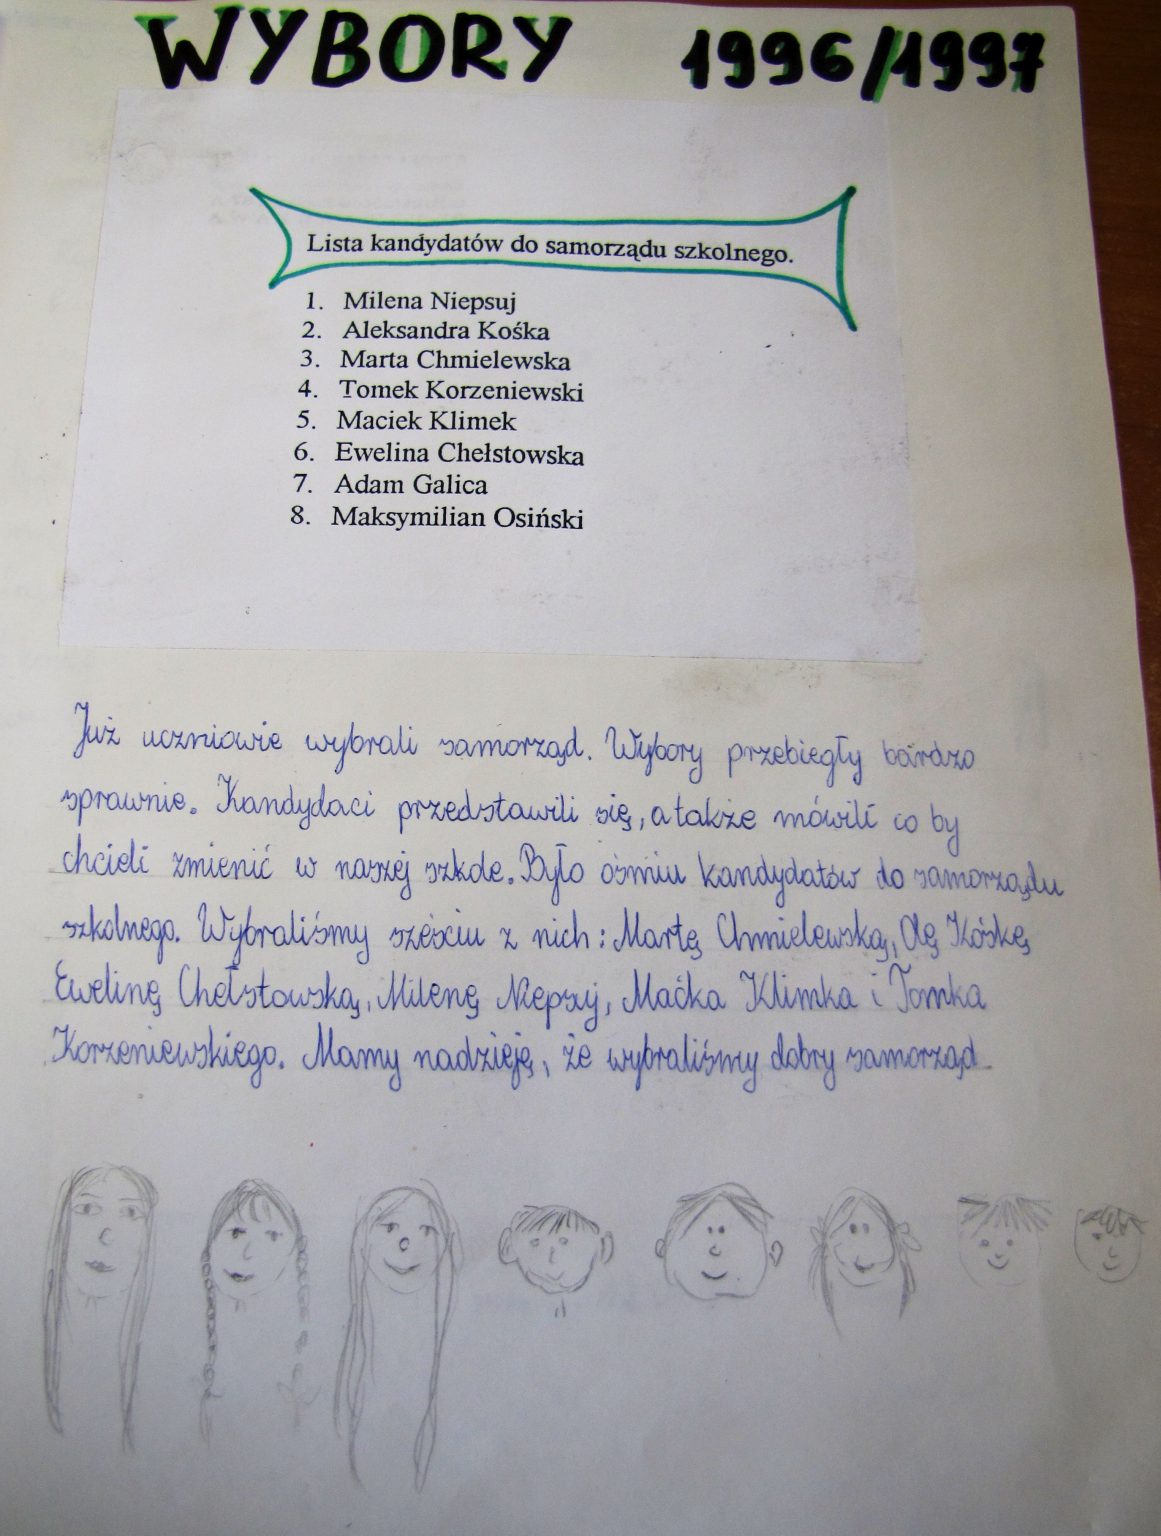 WYBORY 1996/1997
Lista kandydatów do samorządu szkolnego.
1. Milena Niepsuj
2. Aleksandra Kośka
3. Marta Chmielewska
4. Tomek Korzeniewski
5. Maciek Klimek
6. Ewelina Chełstowska
7. Adam Galica
8. Maksymilian Osiński
Już uczniowie wybrali samorząd. Wybory przebiegły bardzo
sprawnie. Kandydaci przedstawili się, a także mówili co by
chcieli zmienić w naszej szkole. Było ośmiu kandydatów do samorządu
szkolnego. Wybraliśmy sześciu z nich: Martę Chmielewską, Olę Kóśkę
Ewelinę Chełstowską, Milenę Niepsuj, Maćka Klimka i Tomka
Korzeniewskiego. Mamy nadzieję, że wybraliśmy dobry samorząd.